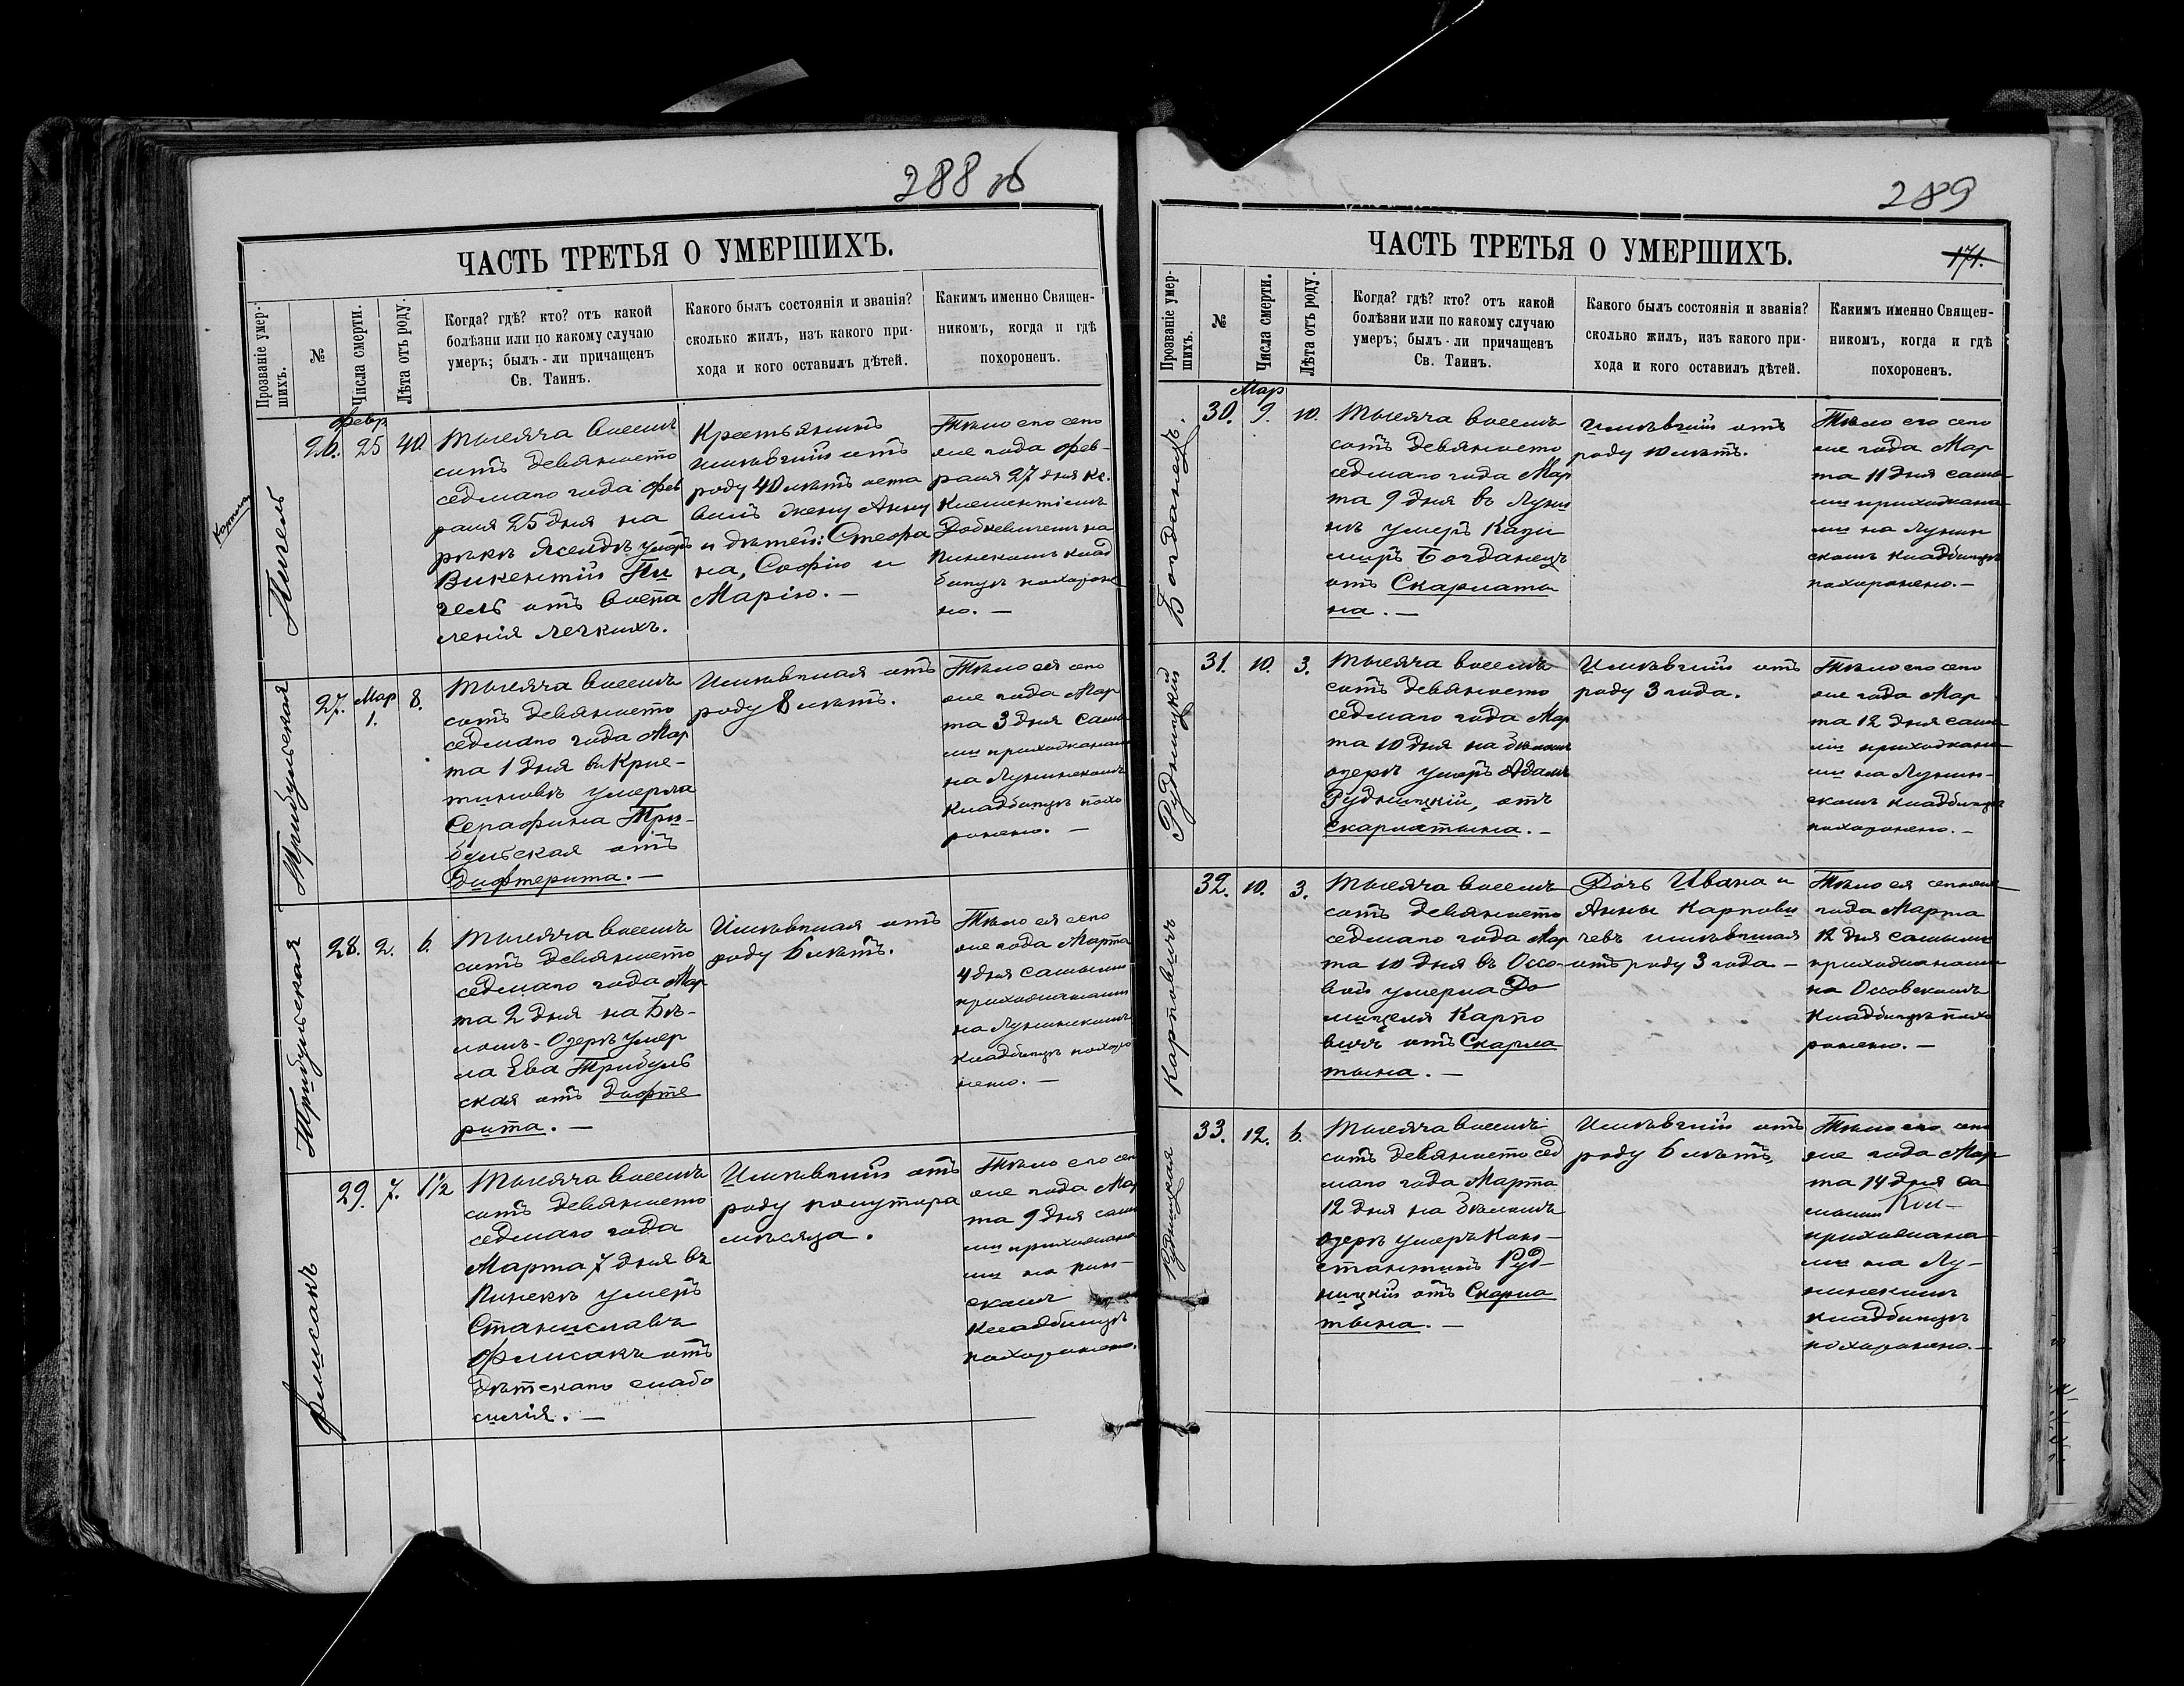 288 об
ЧАСТЬ ТРЕТЬЯ О УМЕРШИХЪ.
Прозваніе умер-
шихъ.
№
Числа смерти.
Лѣта отъ роду.
Когда? гдѣ? кто? отъ какой
болѣзни или по какому случаю
умеръ; былъ-ли причащенъ
Св. Таинъ.
Какого былъ состоянія и званія?
сколько жилъ, изъ какого при-
хода и кого оставилъ дѣтей.
Какимъ именно Священ-
никомъ, когда и гдѣ
похороненъ.
Пигель
26.
Февр
25
40.
Тысяча восемъ
сотъ девяносто
седмаго года Фев
раля 25 дня на
рѣкѣ Ясельдѣ умеръ
Викентій Пи
гель отъ воспа
ленія легкихъ.
Крестьянинъ
имѣвшій отъ
роду 40 лѣтъ оста
вилъ жену Анну
и дѣтей: Стефа
на, Софію и
Марію. —
Тѣло его сего
же года Фев-
раля 27 дня Кс.
Климентіемъ
на
Пинскомъ клад
бищѣ похороне
но. —
Трибульская
27.
Мар
1.
8.
Тысяча восемъ
сотъ девяносто
седмаго года Мар
та 1 дня въ Крис-
тиновѣ умерла
Серафина Три-
бульская отъ
дифтерита. —
Имѣвшая отъ
роду 8 лѣтъ.
Тѣло ея сего
же года Мар
та 3 дня самы
ми прихожанами
на Лунинскомъ
кладбищѣ похо
ронено. —
Трибульская
28.
2.
6.
Тысяча восемъ
сотъ девяносто
седмаго года Мар
та 2 дня на Бѣ-
ломъ-Озерѣ умер
ла Ева Трибуль
ская отъ дифте
рита. —
Имѣвшая отъ
роду 6 лѣтъ.
Тѣло ея сего
же года Марта
4 дня самыми
прихожанами
на Лунинскомъ
кладбищѣ похоро
нено. —
Флисакъ
29.
7.
1½
Тысяча восемъ
сотъ девяносто
седмаго года
Марта 7 дня въ
Пинскѣ умеръ
Станиславъ
Флисакъ отъ
дѣтскаго слабо
силія. —
Имѣвшій отъ
роду полутора
мѣсяца.
Тѣло его сего
же года Мар
та 9 дня самы
ми прихожана
ми на Пин-
скомъ
кладбищѣ
похоронено.
289
ЧАСТЬ ТРЕТЬЯ О УМЕРШИХЪ.
171.
Прозваніе умер-
шихъ.
№
Числа смерти.
Лѣта отъ роду.
Когда? гдѣ? кто? отъ какой
болѣзни или по какому случаю
умеръ; былъ-ли причащенъ
Св. Таинъ.
Какого былъ состоянія и званія?
сколько жилъ, изъ какого при-
хода и кого оставилъ дѣтей.
Какимъ именно Священ-
никомъ, когда и гдѣ
похороненъ.
Богданецъ.
30.
Мар
9.
10.
Тысяча восемъ
сотъ девяносто
седмаго года Мар
та 9 дня въ Луни
нѣ умеръ Кази
миръ Богданецъ
отъ Скарлати
на. —
Имѣвшій отъ
роду 10 лѣтъ.
Тѣло его сего
же года Мар
та 11 дня самы
ми прихожана
ми на Лунин
скомъ кладбищѣ
похоронено. —
Рудницкій
31.
10.
3.
Тысяча восемъ
сотъ девяносто
седмаго года Мар
та 10 дня на Бѣломъ
озерѣ умеръ Адамъ
Рудницкій, отъ
скарлатына. —
Имѣвшій отъ
роду 3 года.
Тѣло его сего
же года Мар
та 12 дня самы
ми прихожана
ми на Лунин-
скомъ кладбищѣ
похоронено. —
Карповичъ
32.
10.
3.
Тысяча восемъ
сотъ девяносто
седмаго года Мар
та 10 дня въ Оссо-
вой умерла До
мицеля Карпо
вичъ отъ Скарла
тына. —
Дочь Ивана и
Анны Карпови
чевъ имѣвшая
отъ роду 3 года —
Тѣло ея сегоже
года Марта
12 дня самыми
прихожанами
на Оссовскомъ
кладбищѣ похо
ронено. —
Рудницкая
33.
12.
6.
Тысяча восемъ
сотъ девяносто сед
маго года Марта
12 дня на Бѣломъ
озерѣ умеръ Кон-
стантинъ Руд-
ницкій отъ Скарла
тына. —
Имѣвшій отъ
роду 6 лѣтъ,
Тѣло его сего
же года Мар
та 14 дня са
мыми
прихожана
ми на Лу-
нинскомъ
кладбищѣ
похоронено. —